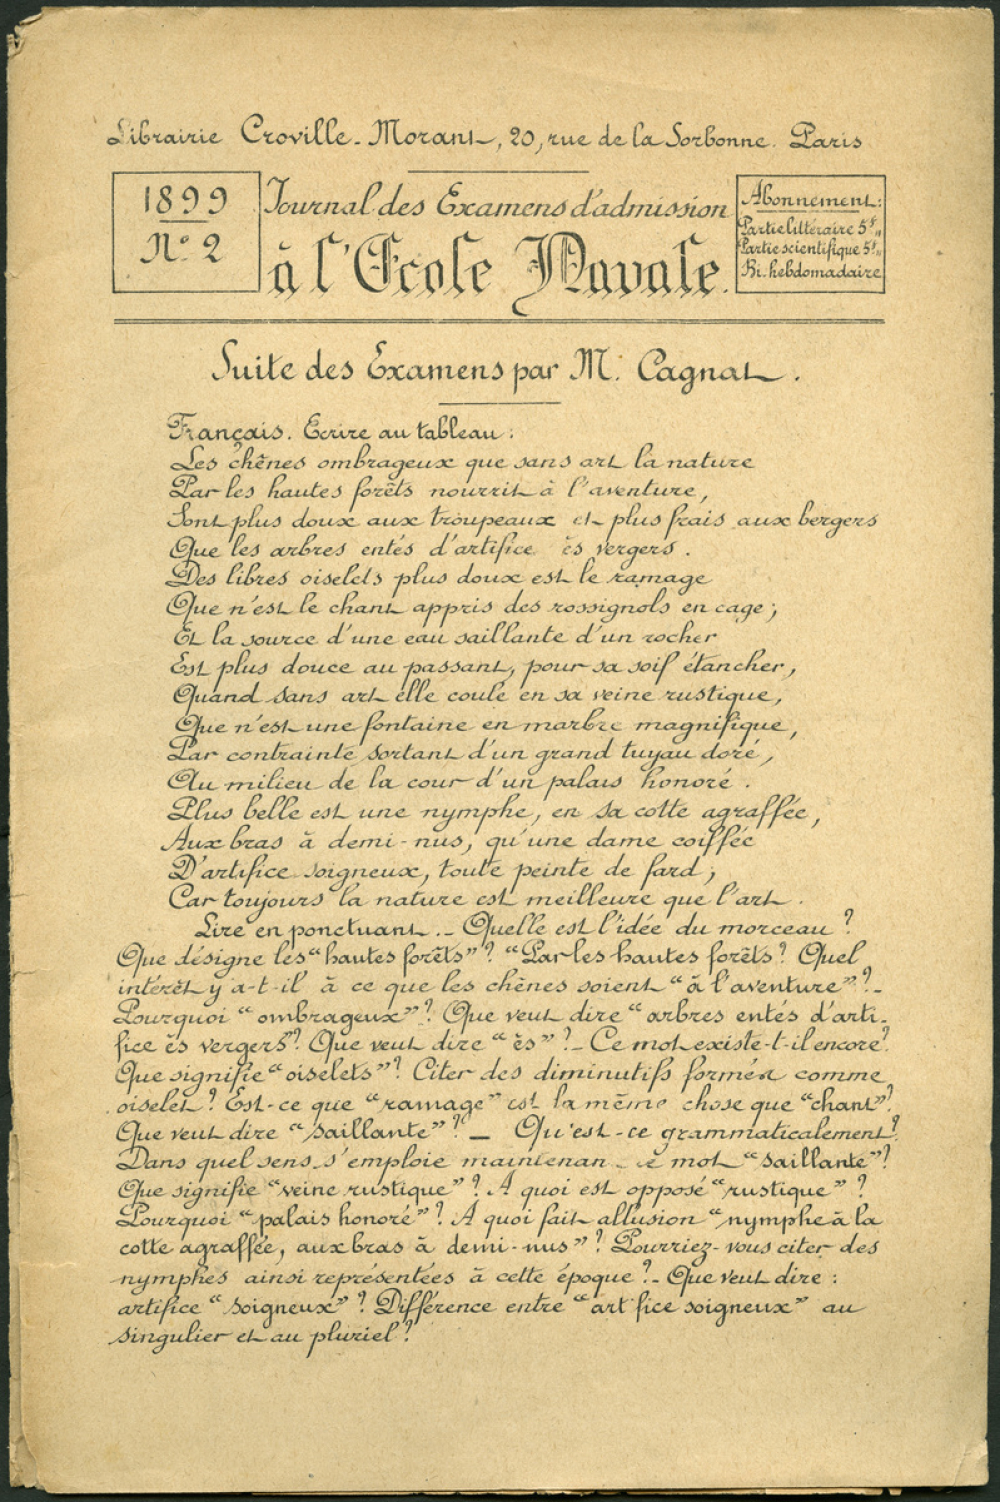 Librairie Croville-Morant, 20, rue de la Sorbonne. Paris
1899
N° 2
Journal des Examens d'admission
à l'Ecole Navale.
Abonnement:
Partie littéraire 5f,,
Partie scientifique 5f,,
Bi-hebdomadaire
Suite des Examens par M. Cagnat.
Français. Ecrire au tableau:
Les chênes ombrageux que sans art la nature
Par les hautes forêts nourrit à l'aventure,
Sont plus doux aux troupeaux et plus frais aux bergers
Que les arbres entés d'artifice ès vergers.
Des libres oiselets plus doux est le ramage
Que n'est le chant appris des rossignols en cage;
Et la source d'une eau saillante d'un rocher
Est plus douce au passant, pour sa soif étancher,
Quand sans art elle coule en sa veine rustique,
Que n'est une fontaine en marbre magnifique,
Par contrainte sortant d'un grand tuyau doré,
Au milieu de la cour d'un palais honoré.
Plus belle est une nymphe, en sa cotte agraffée,
Aux bras à demi-nus, qu'une dame coiffée
D'artifice soigneux, toute peinte de fard;
Car toujours la nature est meilleure que l'art.
Lire en ponctuant. - Quelle est l'idée du morceau?
Que désigne les "hautes forêts"? "Par les hautes forêts? Quel
intérêt y a-t-il à ce que les chênes soient "à l'aventure"? -
Pourquoi "ombrageux"? Que veut dire "arbres entés d'arti-
fice ès vergers"? Que veut dire "ès"? - Ce mot existe-t-il encore?
Que signifie "oiselets"? Citer des diminutifs formés comme
oiselet? Est-ce que "ramage" est la même chose que "chant"?
Que veut dire "saillante"? - Qu'est-ce grammaticalement?
Dans quel sens s'emploie maintenan le mot "saillante"?
Que signifie "veine rustique"? A quoi est opposé "rustique"?
Pourquoi "palais honoré"? A quoi fait allusion "nymphe à la
cotte agraffée, aux bras à demi-nus"? Pourriez-vous citer des
nymphes ainsi représentées à cette époque? - Que veut dire:
artifice "soigneux"? Différence entre "art fice soigneux" au
singulier et au pluriel?